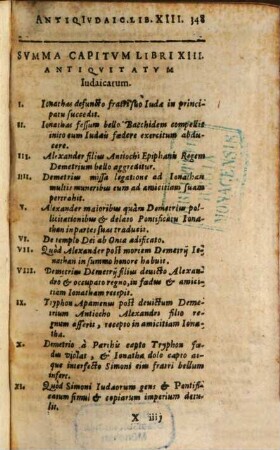 ANTIQ IVDAIC. LIB. XIII. 348
SVMMA CAPITVM LIBRI XIII.
ANTIQVITATVM
Iudaicarum.
I. Ionathas defuncto fratri suo Iuda in princi-
patu succedit.
II. Ionathas fessum bello Bacchidem compellit
inito cum Iudæis fœdere exercitum abdu-
cere.
III. Alexander filius Antiochi Epiphanis Regem
Demetrium bello aggreditur.
IIII. Demetrius missa legatione ad Ionathan
multis muneribus eum ad amicitiam suam
pertrahit.
V. Alexander maioribus quàm Demetrius pol-
licitationibus & delato Pontificatu Iona-
than in partes suas traducit.
VI. De templo Dei ab Onia ædificato.
VII. Quòd Alexander post mortem Demetrij Io-
nathan in summo honore habuit.
VIII. Demetrius Demetrij filius deuicto Alexand-
ro & occupato regno, in fœdus & amici-
tiam Ionatham recepit.
IX. Tryphon Apamenus post deuictum Deme-
trium Antiocho Alexandri filio re-
gnum asserit, recepto in amicitiam Io-
natha.
X. Demetrio à Parthis capto Tryphon fœ-
dus violat, & Ionatha dolo capto at-
que interfecto Simoni eius fratri bellum
infert.
XI. Quòd Simoni Iudæorum gens & Pontifi-
catum simul & copiarum imperium detu-
lit.
X iiij
MONACENSIS